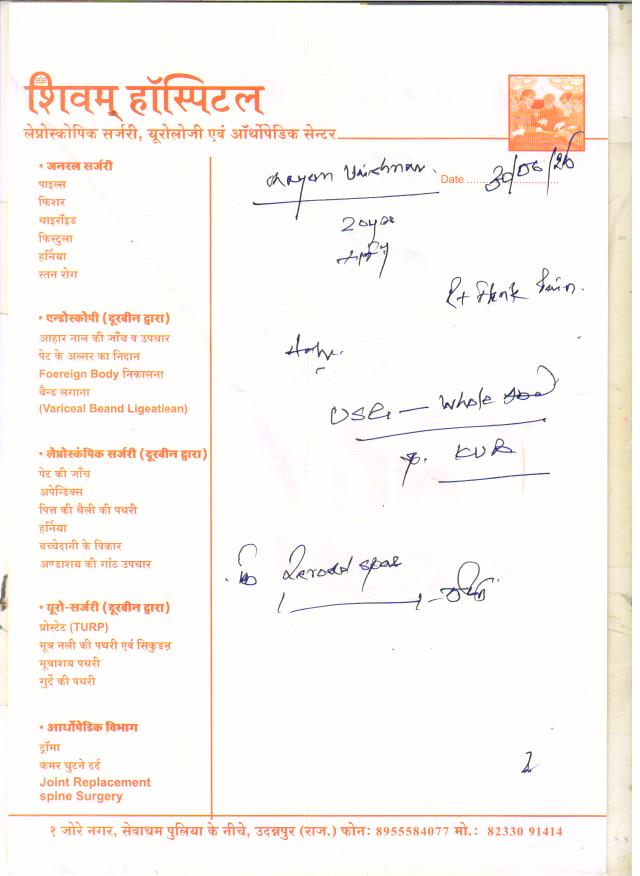 शिवम् हॉस्पिटल
लेप्रोस्कोपिक सर्जरी, यूरोलोजी एवं ऑर्थोपेडिक सेन्टर
• जनरल सर्जरी
पाइल्स
फिशर
थाइरॉइड
फिस्टुला
हर्निया
स्तन रोग
• एन्डोस्कोपी (दूरबीन द्वारा)
आहार नाल की जाँच व उपचार
पेट के अल्सर का निदान
Foereign Body निकालना
बैन्ड लगाना
(Variceal Beand Ligeatiean)
• लेप्रोस्कंपिक सर्जरी (दूरबीन द्वारा)
पेट की जाँच
अपेन्डिक्स
पित्त की थैली की पथरी
हर्निया
बच्चेदानी के विकार
अण्डाशय की गांठ उपचार
• यूरो-सर्जरी (दूरबीन द्वारा)
प्रोस्टेट (TURP)
मूत्र नली की पथरी एवं सिकुडऩ
मूत्राशय पथरी
गुर्दे की पथरी
• आर्थोपेडिक विभाग
ट्रॉमा
कमर घुटने दर्द
Joint Replacement
spine Surgery
Date
Rt Flank Pain.
USG — Whole
KUB
१ जोरे नगर, सेवाधम पुलिया के नीचे, उदन्नपुर (राज.) फोन: 8955584077 मो.: 82330 91414